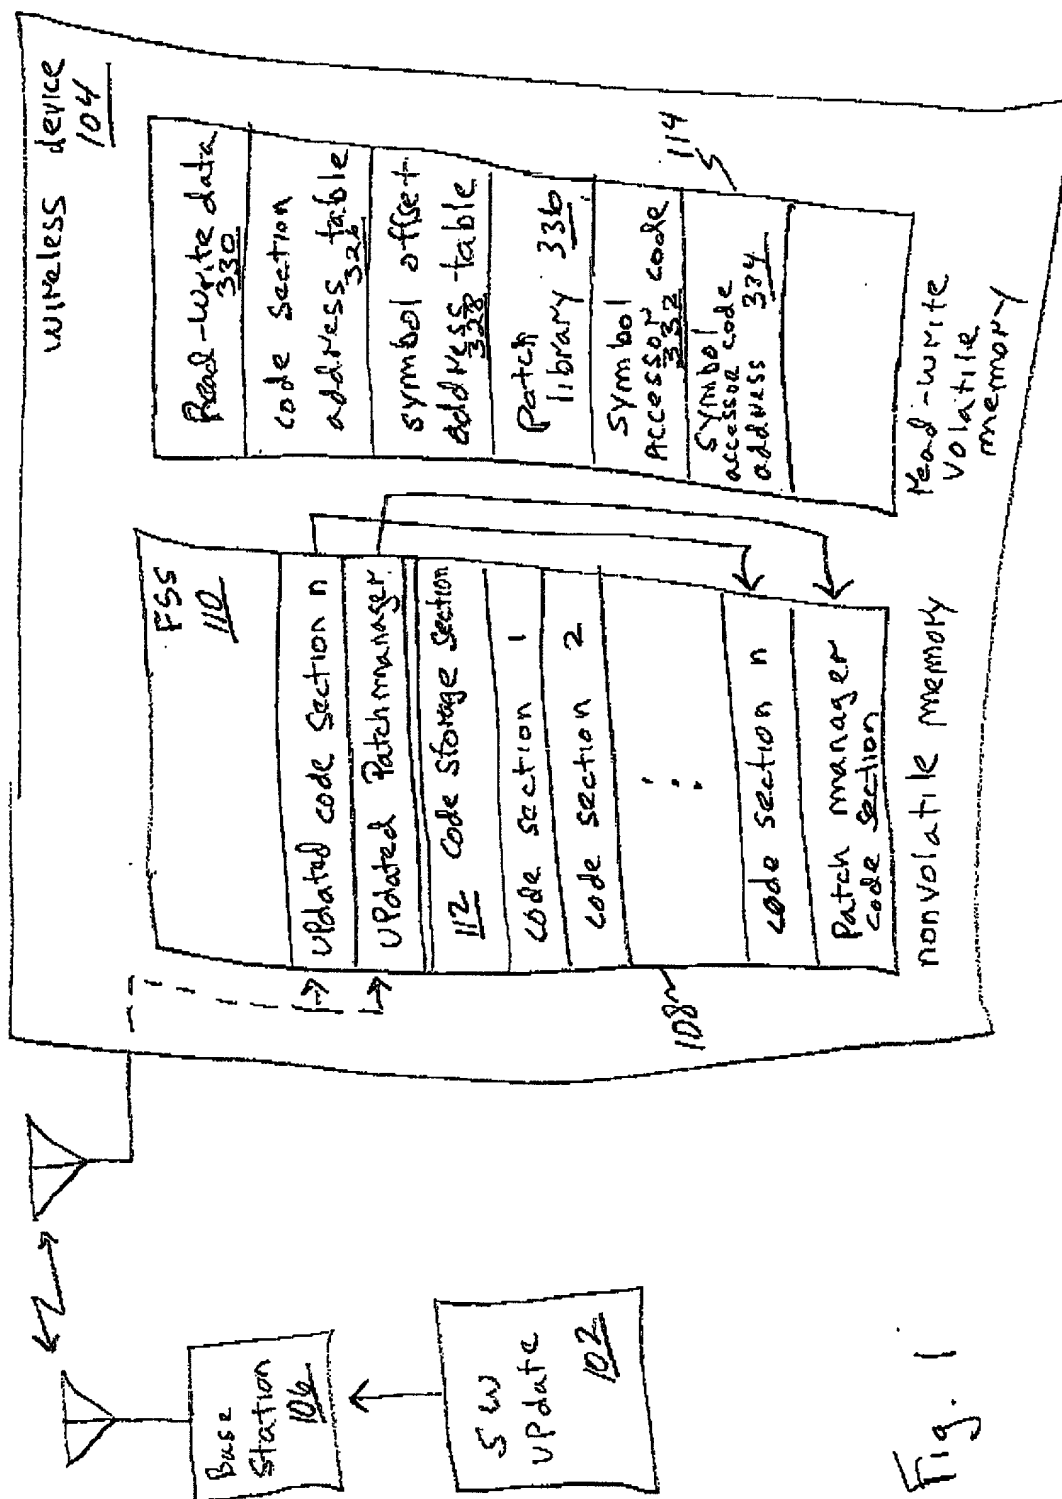 wireless device
104
Base
Station
106
SW
update
102
FSS
110
updated code section n
updated Patch manager
112 code storage section
code section 1
code section 2
code section n
Patch manager
code section
108
nonvolatile memory
Read-write data
330
code section
address table
326
symbol offset
address table
328
Patch
library 336
symbol
Accessor code
332
symbol
accessor code
address 334
114
read-write
volatile
memory
Fig. 1